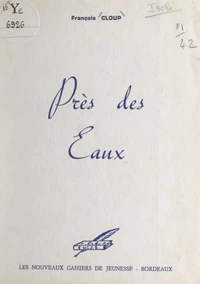 Ye
6926
François CLOUP
42
Près des
Eaux
LES NOUVEAUX CAHIERS DE JEUNESSE - BORDEAUX